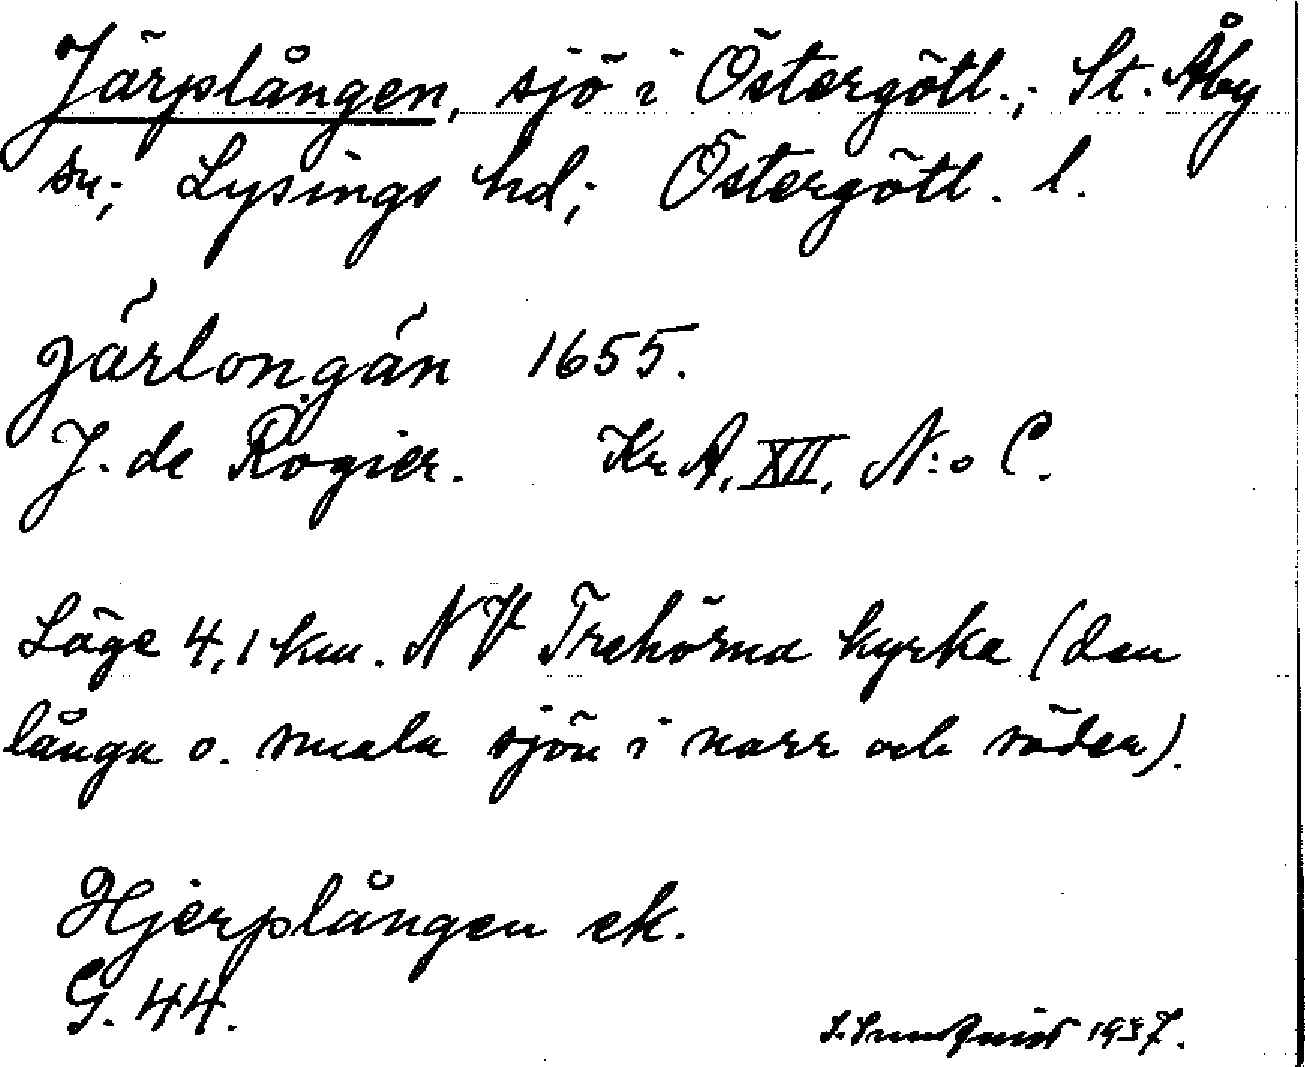 Järplången, sjö i Östergötl.; St. Åby
sn; Lysings hd; Östergötl. l.
Järlongán 1655.
J. de Rogier. Kr A, XII, N:o C.
Läge 4,1 km. NV Trehörna kyrka (den
långa o. smala sjön i norr och söder).
Hjerplången ek.
G. 44.
S. Sundqvist 1937.